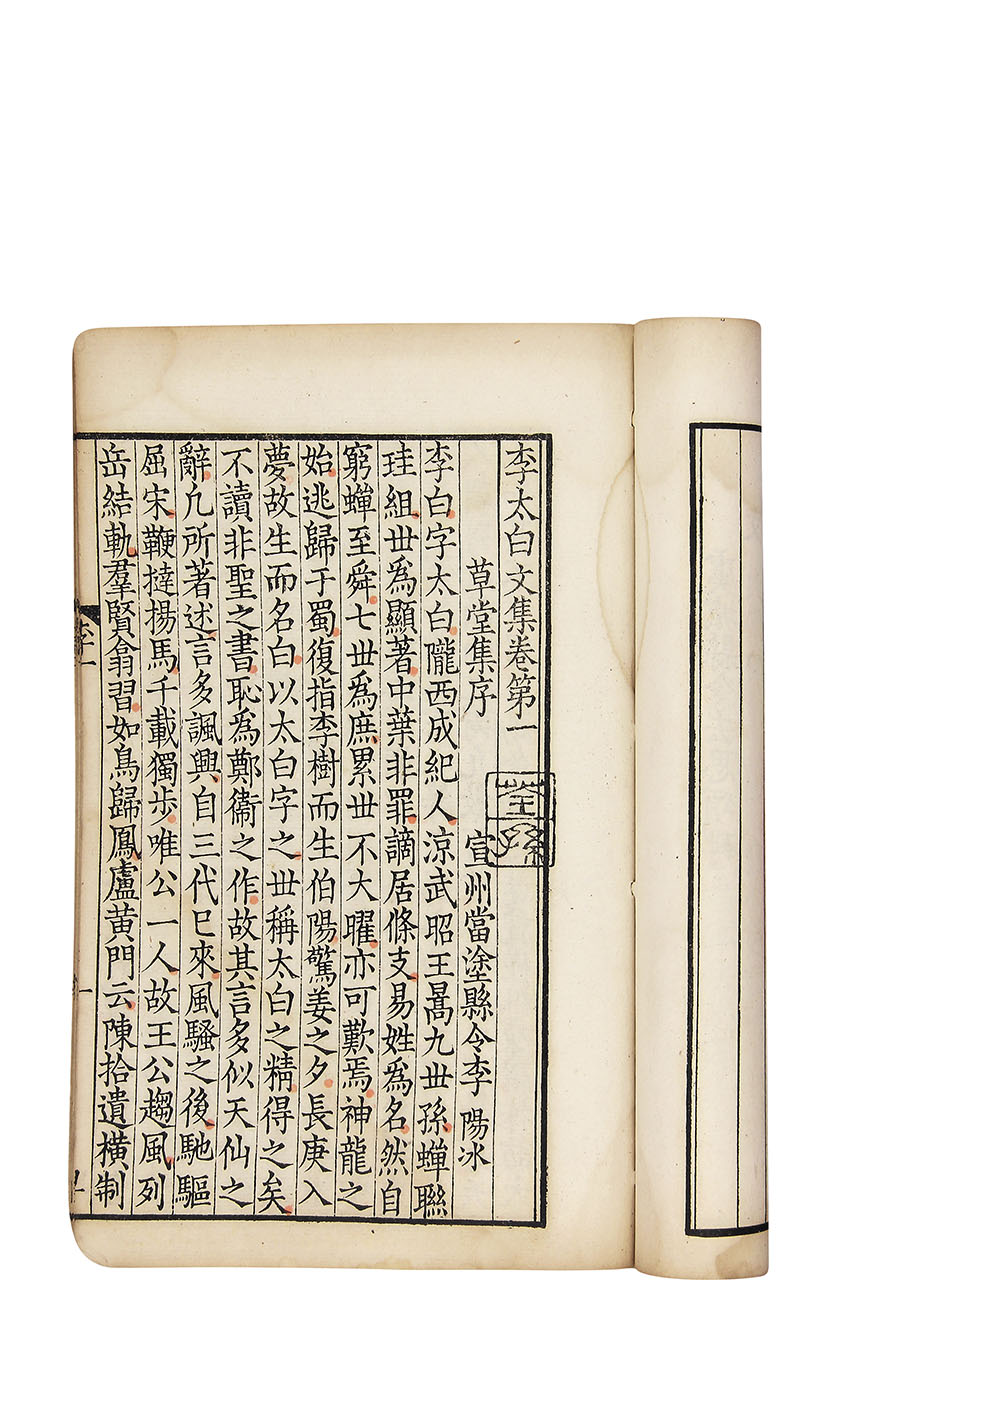 李太白文集卷第一
草堂集序
宣州當塗縣令李陽冰
李白字太白隴西成紀人涼武昭王暠九丗孫蟬聯
珪組丗爲顯著中葉非罪謫居條支易姓爲名然自
窮蟬至舜七丗爲庶累丗不大曜亦可歎焉神龍之
始逃歸于蜀復指李樹而生伯陽驚姜之夕長庚入
夢故生而名白以太白字之丗稱太白之精得之矣
不讀非聖之書恥爲鄭衞之作故其言多似天仙之
辭凢所著述言多諷興自三代已來風騷之後馳驅
屈宋鞭撻揚馬千載獨步唯公一人故王公趨風列
岳結軌羣賢翕習如鳥歸鳳盧黃門云陳拾遺橫制